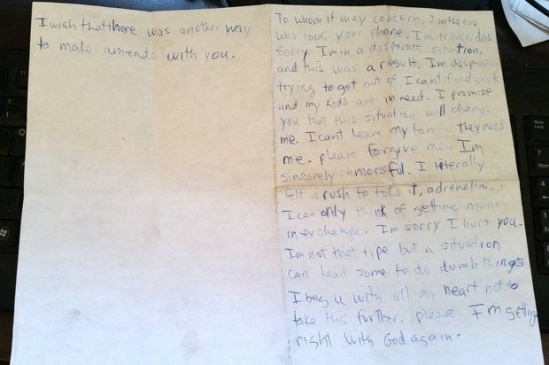 I wish that there was another way
to make amends with you.
To whom it may concern, I'm the one
who took your phone. I'm
sorry. I'm in a desperate situation.
and this was a result. I'm
trying to get out of I cant find work
and my kids are in need. I promise
you that this situation will change
me. I cant leave my family they need
me. please forgive me. I'm
sincerely remorsful. I literally
felt a rush to it, adrenaline.
I can only think of getting money
in exchange. I'm sorry I hurt you.
I'm not that type but a situation
can lead some to do dumb things
I beg u with all my heart not to
take this further. please. I'm getting
right with God again.